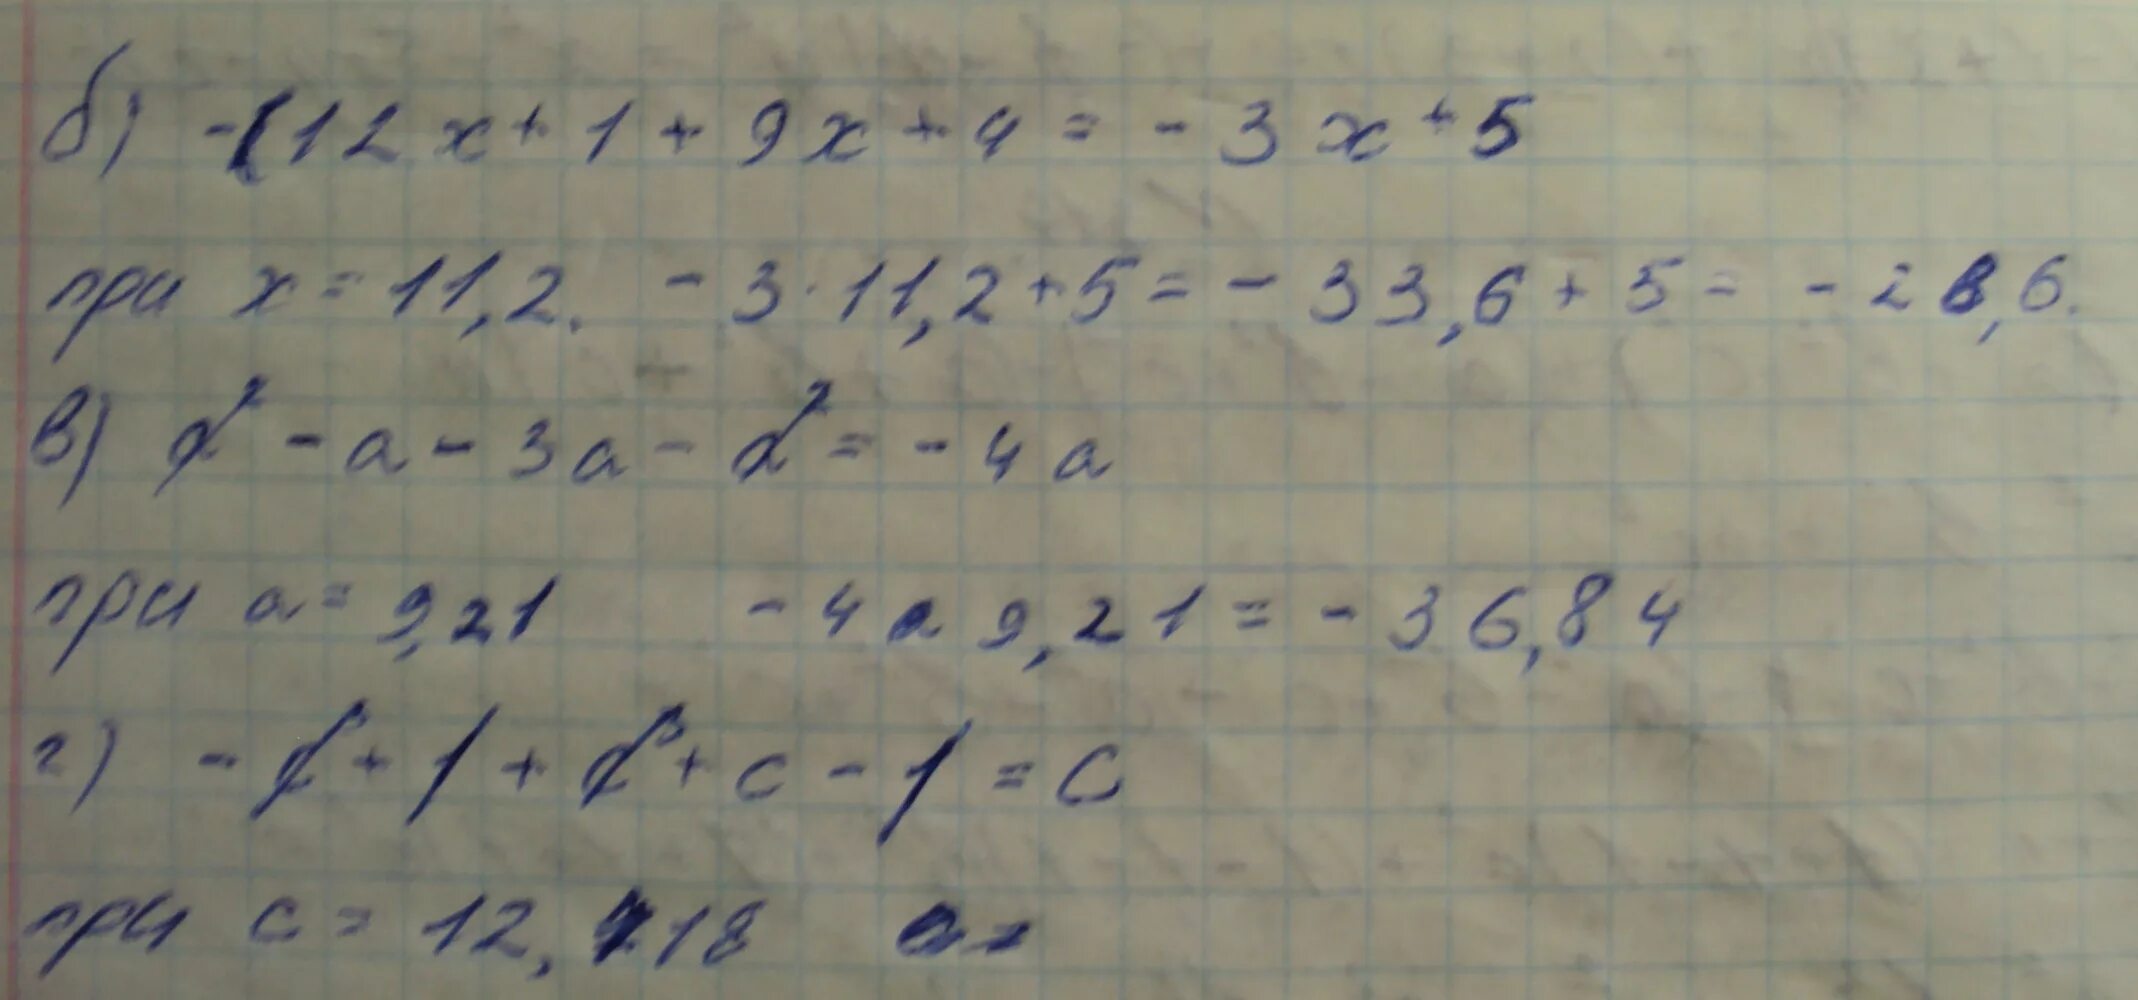 б) -12x + 1 + 9x + 4 = - 3x + 5
при x = 11,2. - 3 · 11,2 + 5 = - 33,6 + 5 = - 28,6.
в) a² - a - 3a - a² = - 4a
при a = 9,21 - 4 · 9,21 = - 36,84
г) - c³ + 1 + c³ + c - 1 = c
при c = 12, 18